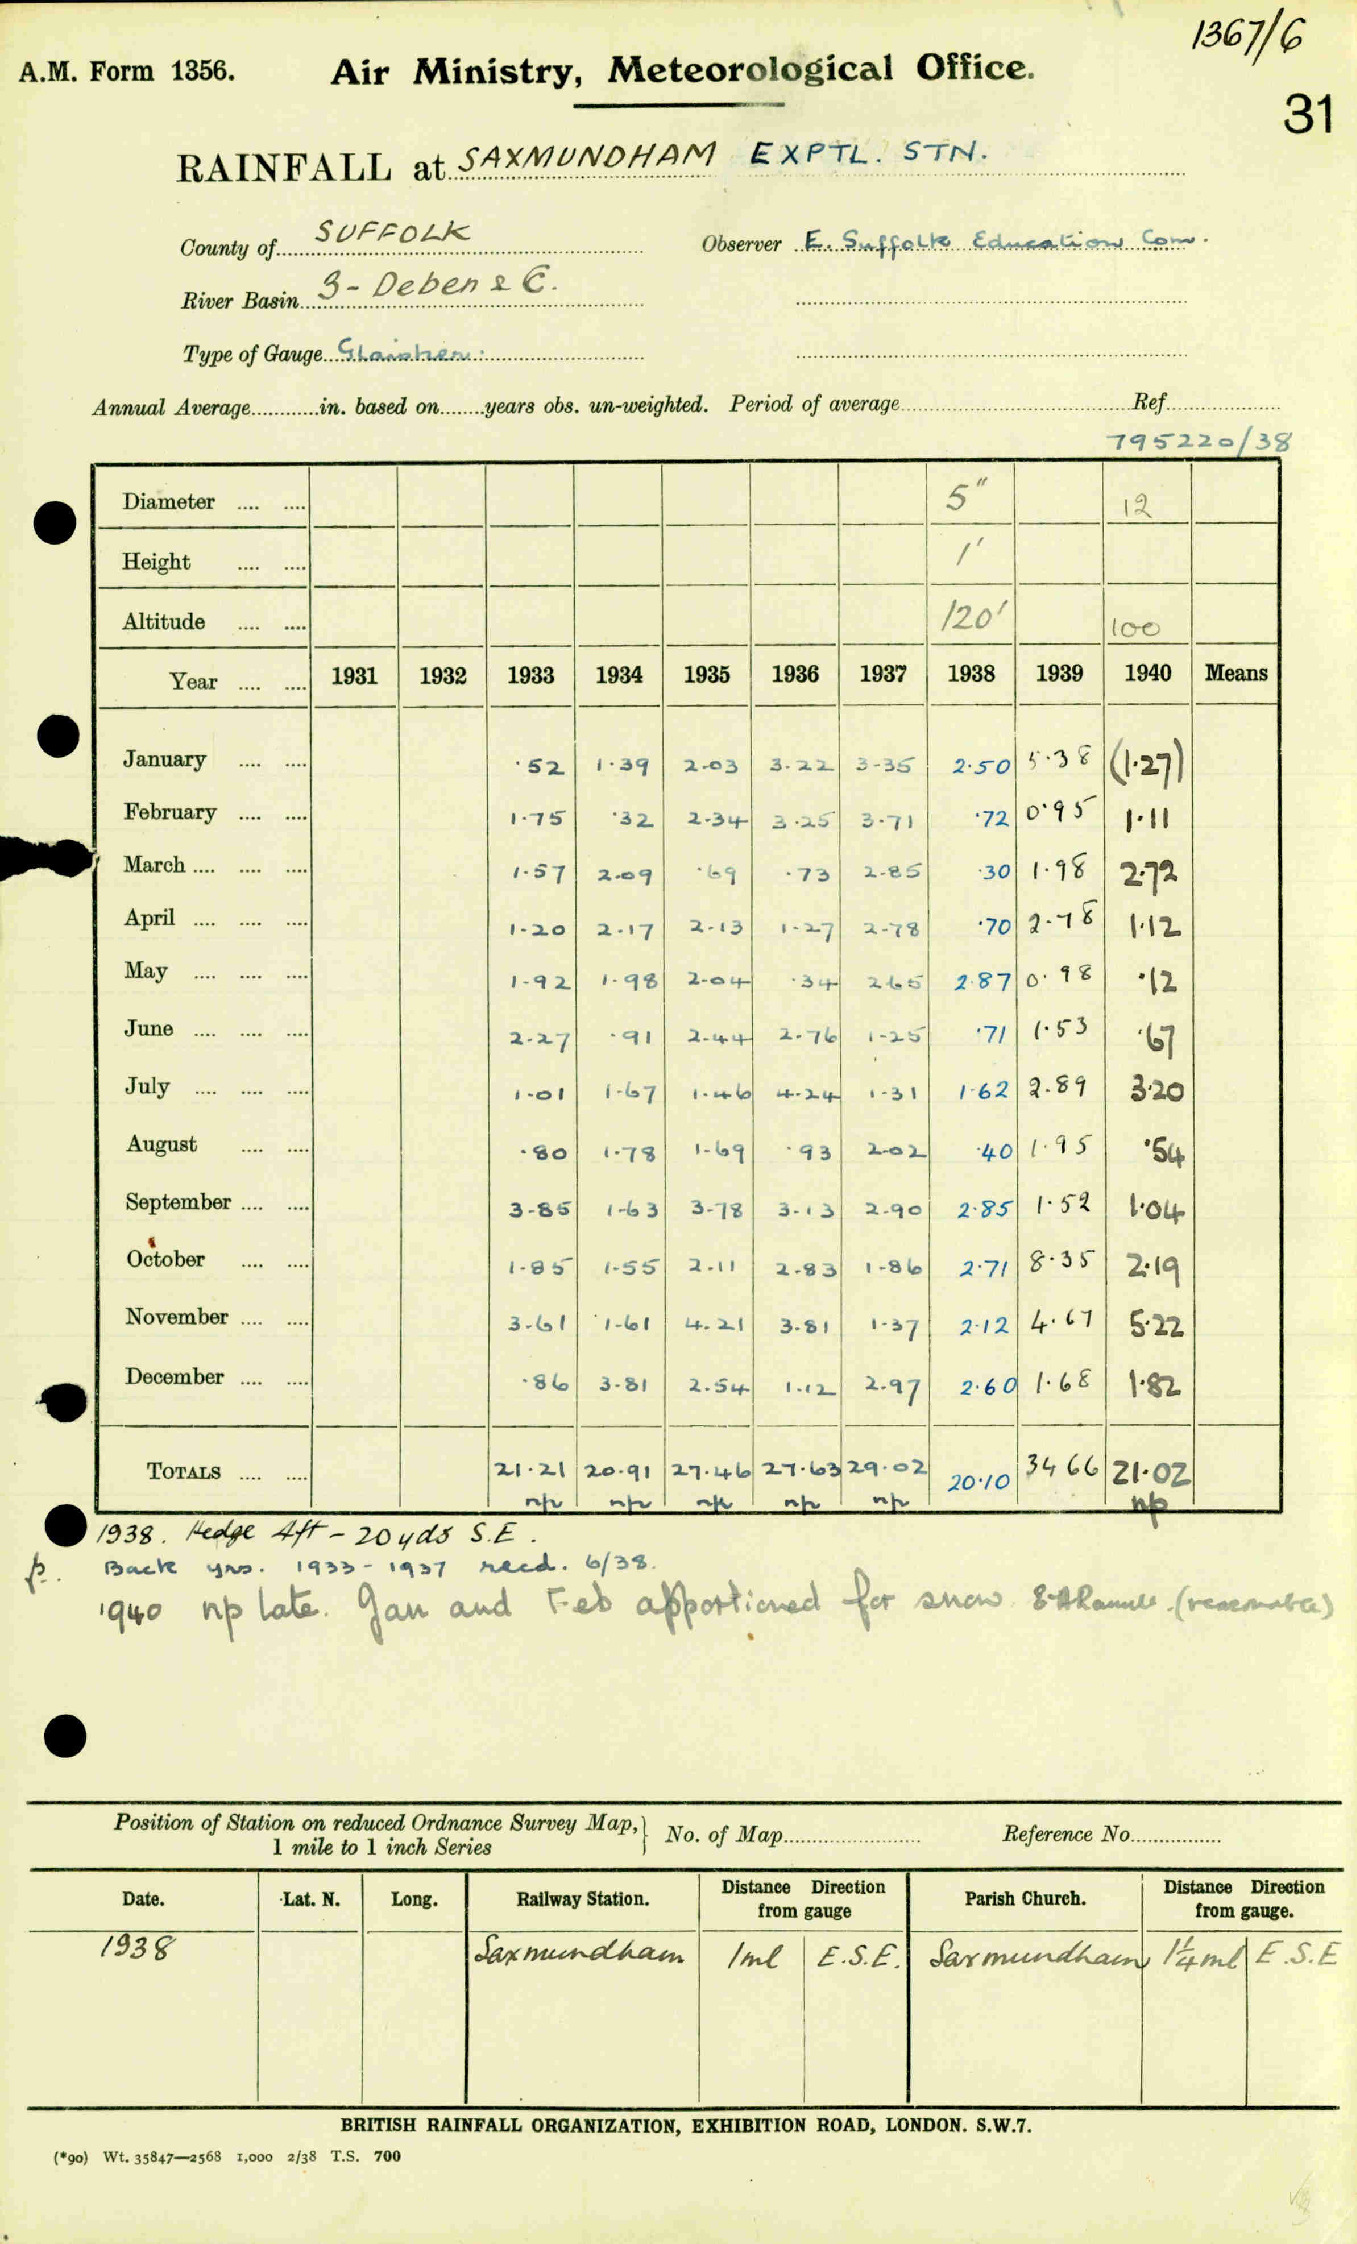 1367/6
A.M. Form 1356. Air Ministry, Meteorological Office.
31
RAINFALL at SAXMUNDHAM EXPTL. STN.
County of SUFFOLK Observer E. Suffolk Education Com.
River Basin 3- Deben & C.
Type of Gauge Glaisher.
Annual Average in. based on years obs. un-weighted. Period of average Ref.
795220/38
Diameter 5" 12
Height 1'
Altitude 120' 100
Year 1931 1932 1933 1934 1935 1936 1937 1938 1939 1940 Means
January ·52 1·39 2·03 3·22 3·35 2·50 5·38 (1·27)
February 1·75 ·32 2·34 3·25 3·71 ·72 0·95 1·11
March 1·57 2·09 ·69 ·73 2·85 ·30 1·98 2·72
April 1·20 2·17 2·13 1·27 2·78 ·70 2·78 1·12
May 1·92 1·98 2·04 ·34 2·65 2·87 0·98 ·12
June 2·27 ·91 2·44 2·76 1·25 ·71 1·53 ·67
July 1·01 1·67 1·46 4·24 1·31 1·62 2·89 3·20
August ·80 1·78 1·69 ·93 2·02 ·40 1·95 ·54
September 3·85 1·63 3·78 3·13 2·90 2·85 1·52 1·04
October 1·85 1·55 2·11 2·83 1·86 2·71 8·35 2·19
November 3·61 1·61 4·21 3·81 1·37 2·12 4·67 5·22
December ·86 3·81 2·54 1·12 2·97 2·60 1·68 1·82
TOTALS 21·21 20·91 27·46 27·63 29·02 20·10 34 66 21·02
np np np np np np
1938. Hedge 4ft - 20yds S.E.
p. Back yrs. 1933-1937 recd. 6/38.
1940 np late. Jan and Feb apportioned for snow (reasonable)
Position of Station on reduced Ordnance Survey Map, 1 mile to 1 inch Series No. of Map Reference No.
Date. Lat. N. Long. Railway Station. Distance Direction from gauge Parish Church. Distance Direction from gauge.
1938 Saxmundham 1ml E.S.E. Saxmundham 1¼ml E.S.E
BRITISH RAINFALL ORGANIZATION, EXHIBITION ROAD, LONDON. S.W.7.
(*90) Wt. 35847—2568 1,000 2/38 T.S. 700